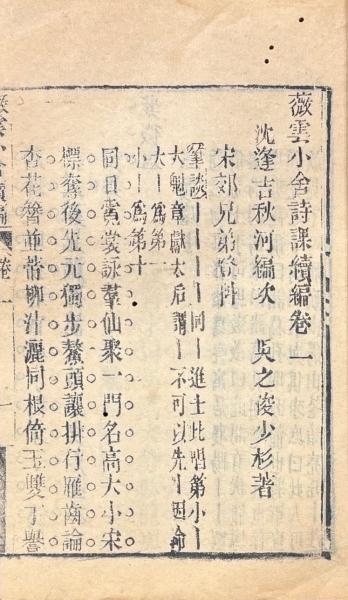 薇雲小舍詩課續編卷一
沈逢吉秋河編次　吳之俊少杉著
宋郊兄弟發科
筆談｜｜｜｜同｜進士比唱第小｜
大魁章獻太后謂｜不可以先｜因命
大｜為第一
小｜為第十
同日霓裳詠羣仙聚一門名高大小宋
標奪後先元獨步鰲頭讓排行雁齒論
杏花簪並蒂柳汁灑同根倚玉雙丁譽
卷一
一